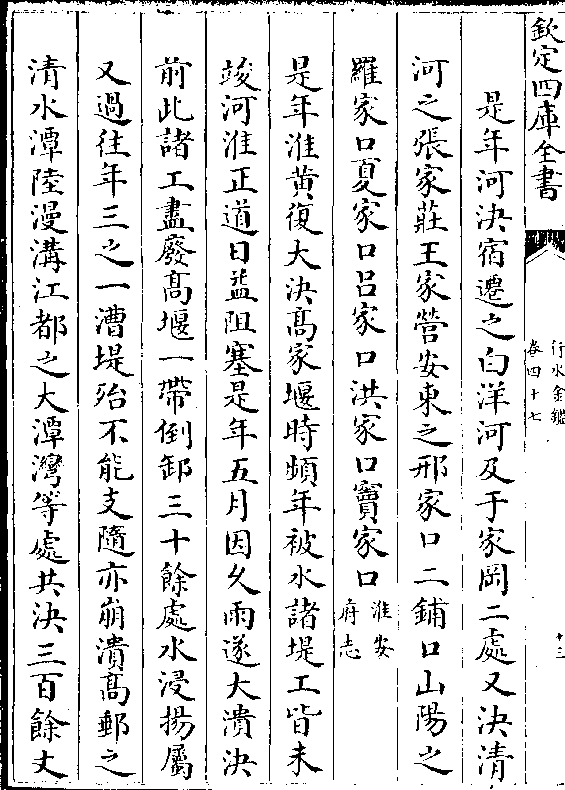 欽定四庫全書
行水金鑑
卷四十七
十三
是年河決宿遷之白洋河及于家岡二處又決清
河之張家莊王家營安東之邢家口二鋪口山陽之
羅家口夏家口吕家口洪家口竇家口淮安
府志
是年淮黃復大決髙家堰時頻年被水諸堤工皆未
竣河淮正道日益阻塞是年五月因久雨遂大潰決
前此諸工盡廢髙堰一帶倒卸三十餘處水浸揚屬
又過往年三之一漕堤殆不能支隨亦崩潰髙郵之
清水潭陸漫溝江都之大潭灣等處共決三百餘丈